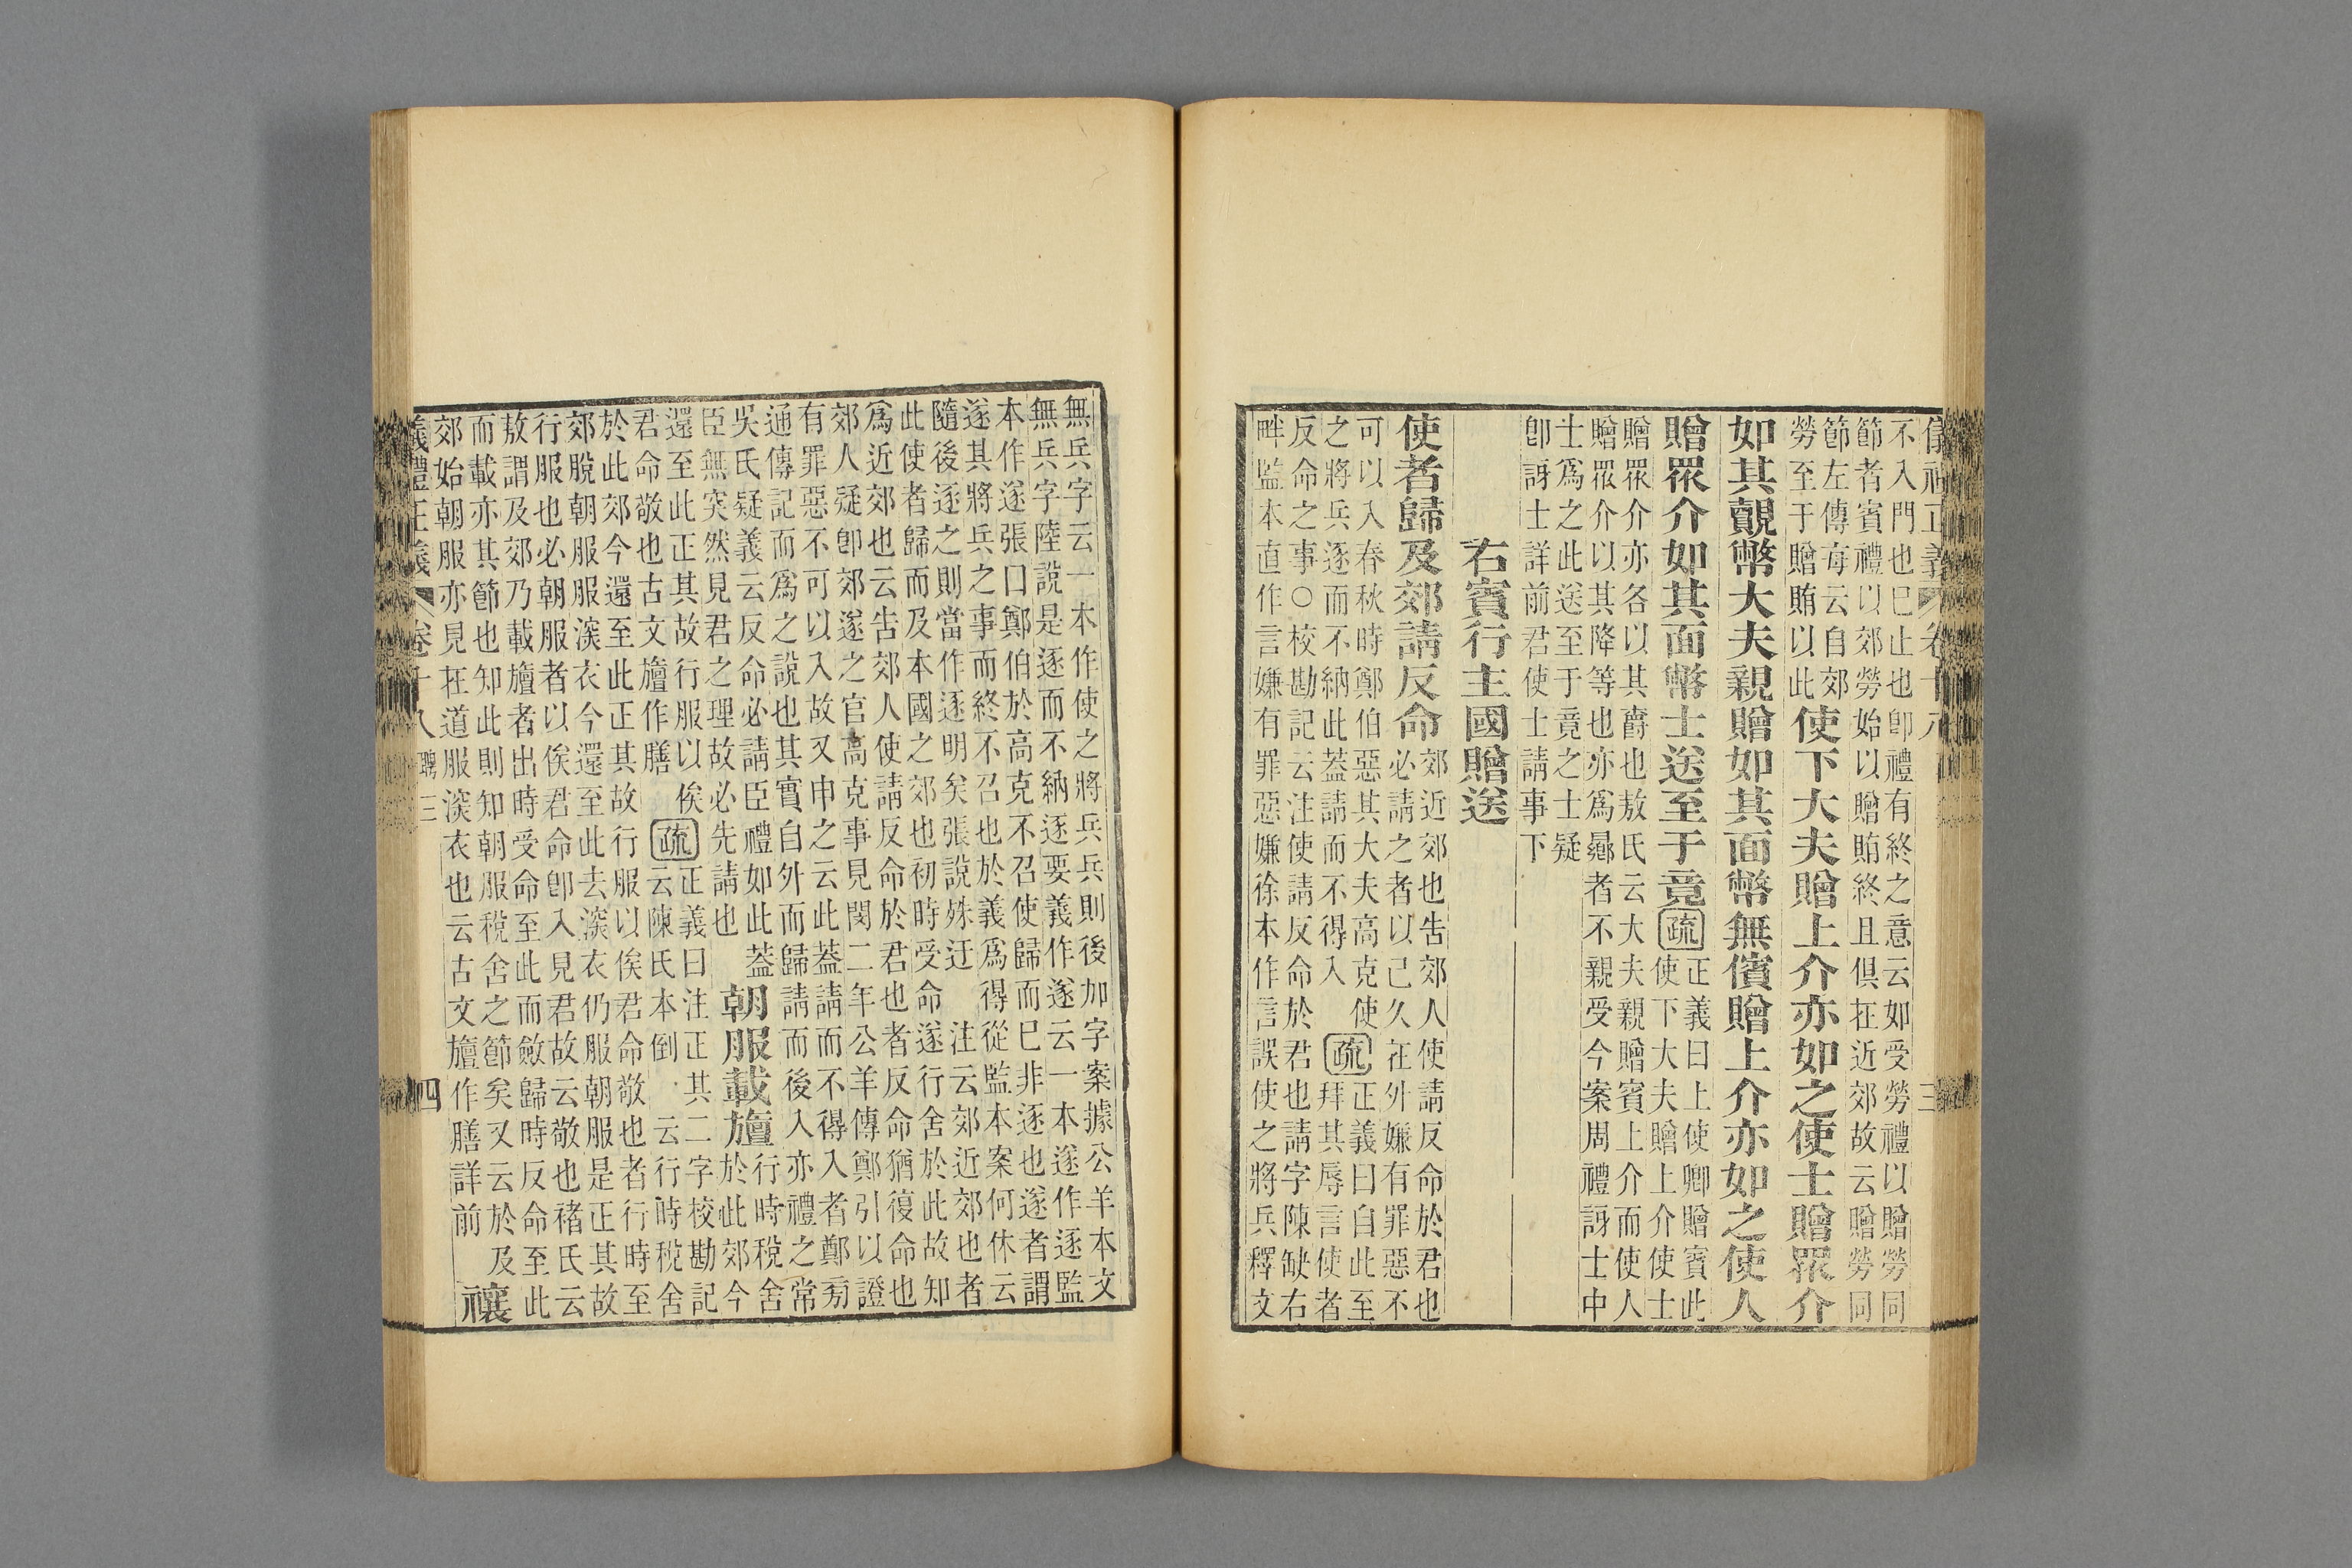 儀禮正義 卷十八 三
不入門也已止也卽禮有終之意云如受勞禮以贈勞同
節者賓禮以郊勞始以贈賄終且俱在近郊故云贈勞同
節左傳每云自郊
勞至于贈賄以此
使下大夫贈上介亦如之使士贈眾介
如其覿幣大夫親贈如其面幣無儐贈上介亦如之使人
贈眾介如其面幣士送至于竟疏
正義曰上使卿贈賓此
使下大夫贈上介使士
贈眾介亦各以其爵也敖氏云大夫親贈賓上介而使人
贈眾介以其降等也亦爲曏者不親受今案周禮訝士中
士爲之此送至于竟之士疑
卽訝士詳前君使士請事下
右賓行主國贈送
使者歸及郊請反命
郊近郊也告郊人使請反命於君也
必請之者以己久在外嫌有罪惡不
可以入春秋時鄭伯惡其大夫高克使
之將兵逐而不納此蓋請而不得入
疏
正義曰自此至
拜其辱言使者
反命之事○校勘記云注使請反命於君也請字陳缺右
畔監本直作言嫌有罪惡嫌徐本作言誤使之將兵釋文
無兵字云一本作使之將兵兵則後加字案據公羊本文
無兵字陸說是逐而不納逐要義作遂云一本遂作逐監
本作遂張口鄭伯於高克不召使歸而已非逐也遂者謂
遂其將兵之事而終不召也於義爲得從監本案何休云
隨後逐之則當作逐明矣張說殊迂 注云郊近郊也者
此使者歸而及本國之郊也初時受命遂行舍於此故知
爲近郊也云告郊人使請反命於君也者反命猶復命也
郊人疑卽郊遂之官高克事見閔二年公羊傳鄭引以證
有罪惡不可以入故又申之云此蓋請而不得入者鄭旁
通傳記而爲之說也其實自外而歸請而後入亦禮之常
吳氏疑義云反命必請臣禮如此蓋
臣無突然見君之理故必先請也
朝服載旜
行時稅舍
於此郊今
還至此正其故行服以俟
君命敬也古文旜作膳
疏
正義曰注正其二字校勘記
云陳氏本倒 云行時稅舍
於此郊今還至此正其故行服以俟君命敬也者行時至
郊脫朝服服深衣今還至此去深衣仍服朝服是正其故
行服也必朝服者以俟君命卽入見君故云敬也褚氏云
敖謂及郊乃載旜者出時受命至此而斂歸時反命至此
而載亦其節也知此則知朝服稅舍之節矣又云於及
郊始朝服亦見在道服深衣也云古文旜作膳詳前
禳
儀禮正義 卷十八 聘三 四